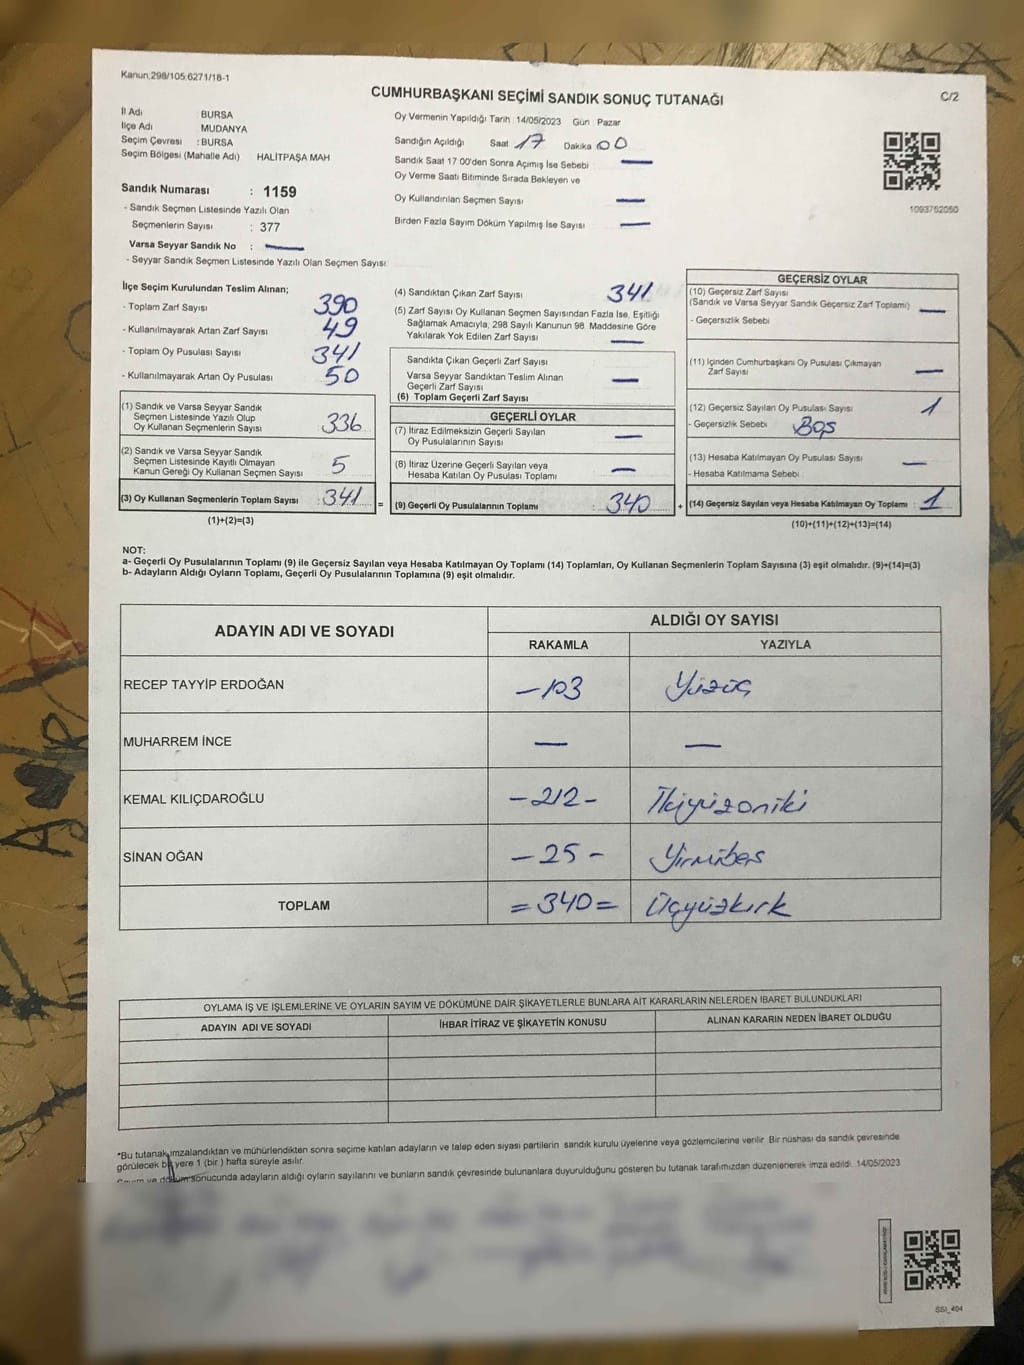 Kanun,298/105:6271/18-1
CUMHURBAŞKANI SEÇİMİ SANDIK SONUÇ TUTANAĞI
C/2
İl Adı BURSA
İlçe Adı MUDANYA
Seçim Çevresi : BURSA
Seçim Bölgesi (Mahalle Adı) HALİTPAŞA MAH
Sandık Numarası : 1159
- Sandık Seçmen Listesinde Yazılı Olan
Seçmenlerin Sayısı : 377
Varsa Seyyar Sandık No : —
- Seyyar Sandık Seçmen Listesinde Yazılı Olan Seçmen Sayısı:
Oy Vermenin Yapıldığı Tarih :14/05/2023 Gün Pazar
Sandığın Açıldığı Saat 17 Dakika 00
Sandık Saat 17:00'den Sonra Açımış İse Sebebi —
Oy Verme Saati Bitiminde Sırada Bekleyen ve
Oy Kullandırılan Seçmen Sayısı —
Birden Fazla Sayım Döküm Yapılmış İse Sayısı —
1093752050
İlçe Seçim Kurulundan Teslim Alınan;
- Toplam Zarf Sayısı 390
- Kullanılmayarak Artan Zarf Sayısı 49
- Toplam Oy Pusulası Sayısı 341
- Kullanılmayarak Artan Oy Pusulası 50
(1) Sandık ve Varsa Seyyar Sandık
Seçmen Listesinde Yazılı Olup
Oy Kullanan Seçmenlerin Sayısı 336
(2) Sandık ve Varsa Seyyar Sandık
Seçmen Listesinde Kayıtlı Olmayan
Kanun Gereği Oy Kullanan Seçmen Sayısı 5
(3) Oy Kullanan Seçmenlerin Toplam Sayısı : 341 =
(1)+(2)=(3)
(4) Sandıktan Çıkan Zarf Sayısı 341
(5) Zarf Sayısı Oy Kullanan Seçmen Sayısından Fazla İse, Eşitliği
Sağlamak Amacıyla, 298 Sayılı Kanunun 98. Maddesine Göre
Yakılarak Yok Edilen Zarf Sayısı —
Sandıkta Çıkan Geçerli Zarf Sayısı
Varsa Seyyar Sandıktan Teslim Alınan
Geçerli Zarf Sayısı —
(6) Toplam Geçerli Zarf Sayısı
GEÇERLİ OYLAR
(7) İtiraz Edilmeksizin Geçerli Sayılan
Oy Pusulalarının Sayısı —
(8) İtiraz Üzerine Geçerli Sayılan veya
Hesaba Katılan Oy Pusulası Toplamı —
(9) Geçerli Oy Pusulalarının Toplamı : 340 +
GEÇERSİZ OYLAR
(10) Geçersiz Zarf Sayısı
(Sandık ve Varsa Seyyar Sandık Geçersiz Zarf Toplamı) —
- Geçersizlik Sebebi
(11) İçinden Cumhurbaşkanı Oy Pusulası Çıkmayan
Zarf Sayısı —
(12) Geçersiz Sayılan Oy Pusulası Sayısı 1
- Geçersizlik Sebebi Boş
(13) Hesaba Katılmayan Oy Pusulası Sayısı —
- Hesaba Katılmama Sebebi
(14) Geçersiz Sayılan veya Hesaba Katılmayan Oy Toplamı : 1
(10)+(11)+(12)+(13)=(14)
NOT:
a- Geçerli Oy Pusulalarının Toplamı (9) ile Geçersiz Sayılan veya Hesaba Katılmayan Oy Toplamı (14) Toplamları, Oy Kullanan Seçmenlerin Toplam Sayısına (3) eşit olmalıdır. (9)+(14)=(3)
b- Adayların Aldığı Oyların Toplamı, Geçerli Oy Pusulalarının Toplamına (9) eşit olmalıdır.
ADAYIN ADI VE SOYADI ALDIĞI OY SAYISI
RAKAMLA YAZIYLA
RECEP TAYYİP ERDOĞAN —103 Yüzüç
MUHARREM İNCE — —
KEMAL KILIÇDAROĞLU —212— İkiyüzoniki
SİNAN OĞAN —25— Yirmibeş
TOPLAM =340= Üçyüzkırk
OYLAMA İŞ VE İŞLEMLERİNE VE OYLARIN SAYIM VE DÖKÜMÜNE DAİR ŞİKAYETLERLE BUNLARA AİT KARARLARIN NELERDEN İBARET BULUNDUKLARI
ADAYIN ADI VE SOYADI İHBAR İTİRAZ VE ŞİKAYETİN KONUSU ALINAN KARARIN NEDEN İBARET OLDUĞU
*Bu tutanak imzalandıktan ve mühürlendikten sonra seçime katılan adayların ve talep eden siyasi partilerin sandık kurulu üyelerine veya gözlemcilerine verilir. Bir nüshası da sandık çevresinde
görülecek bir yere 1 (bir ) hafta süreyle asılır.
ve döküm sonucunda adayların aldığı oyların sayılarını ve bunların sandık çevresinde bulunanlara duyurulduğunu gösteren bu tutanak tarafımızdan düzenlenerek imza edildi. 14/05/2023
SSI_404